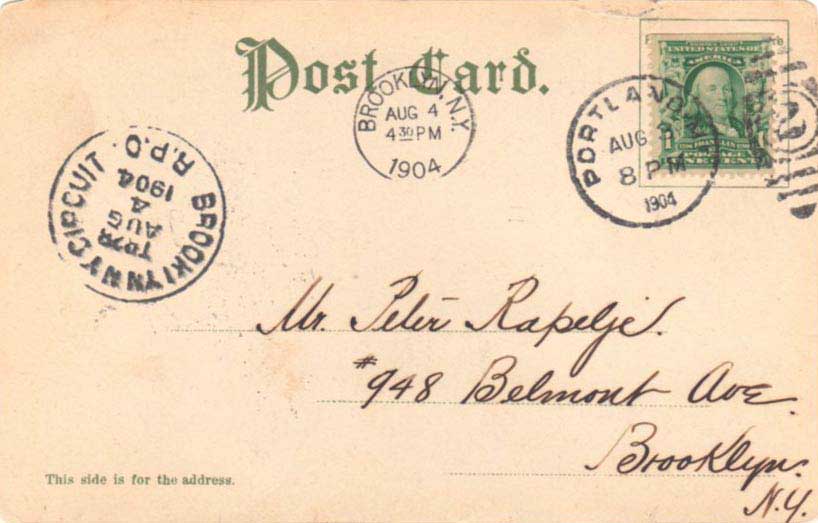 Post Card.
UNITED STATES OF
AMERICA
1
POSTAGE
ONE CENT
BROOKLYN, N.Y.
AUG 4
4 30 PM
1904
PORTLAND
AUG 3
8 PM
1904
BROOKLYN N.Y. CIRCUIT.
R.P.O.
1904
4
AUG
Mr. Peter Rapelje.
#948 Belmont Ave.
Brooklyn.
N.Y.
This side is for the address.